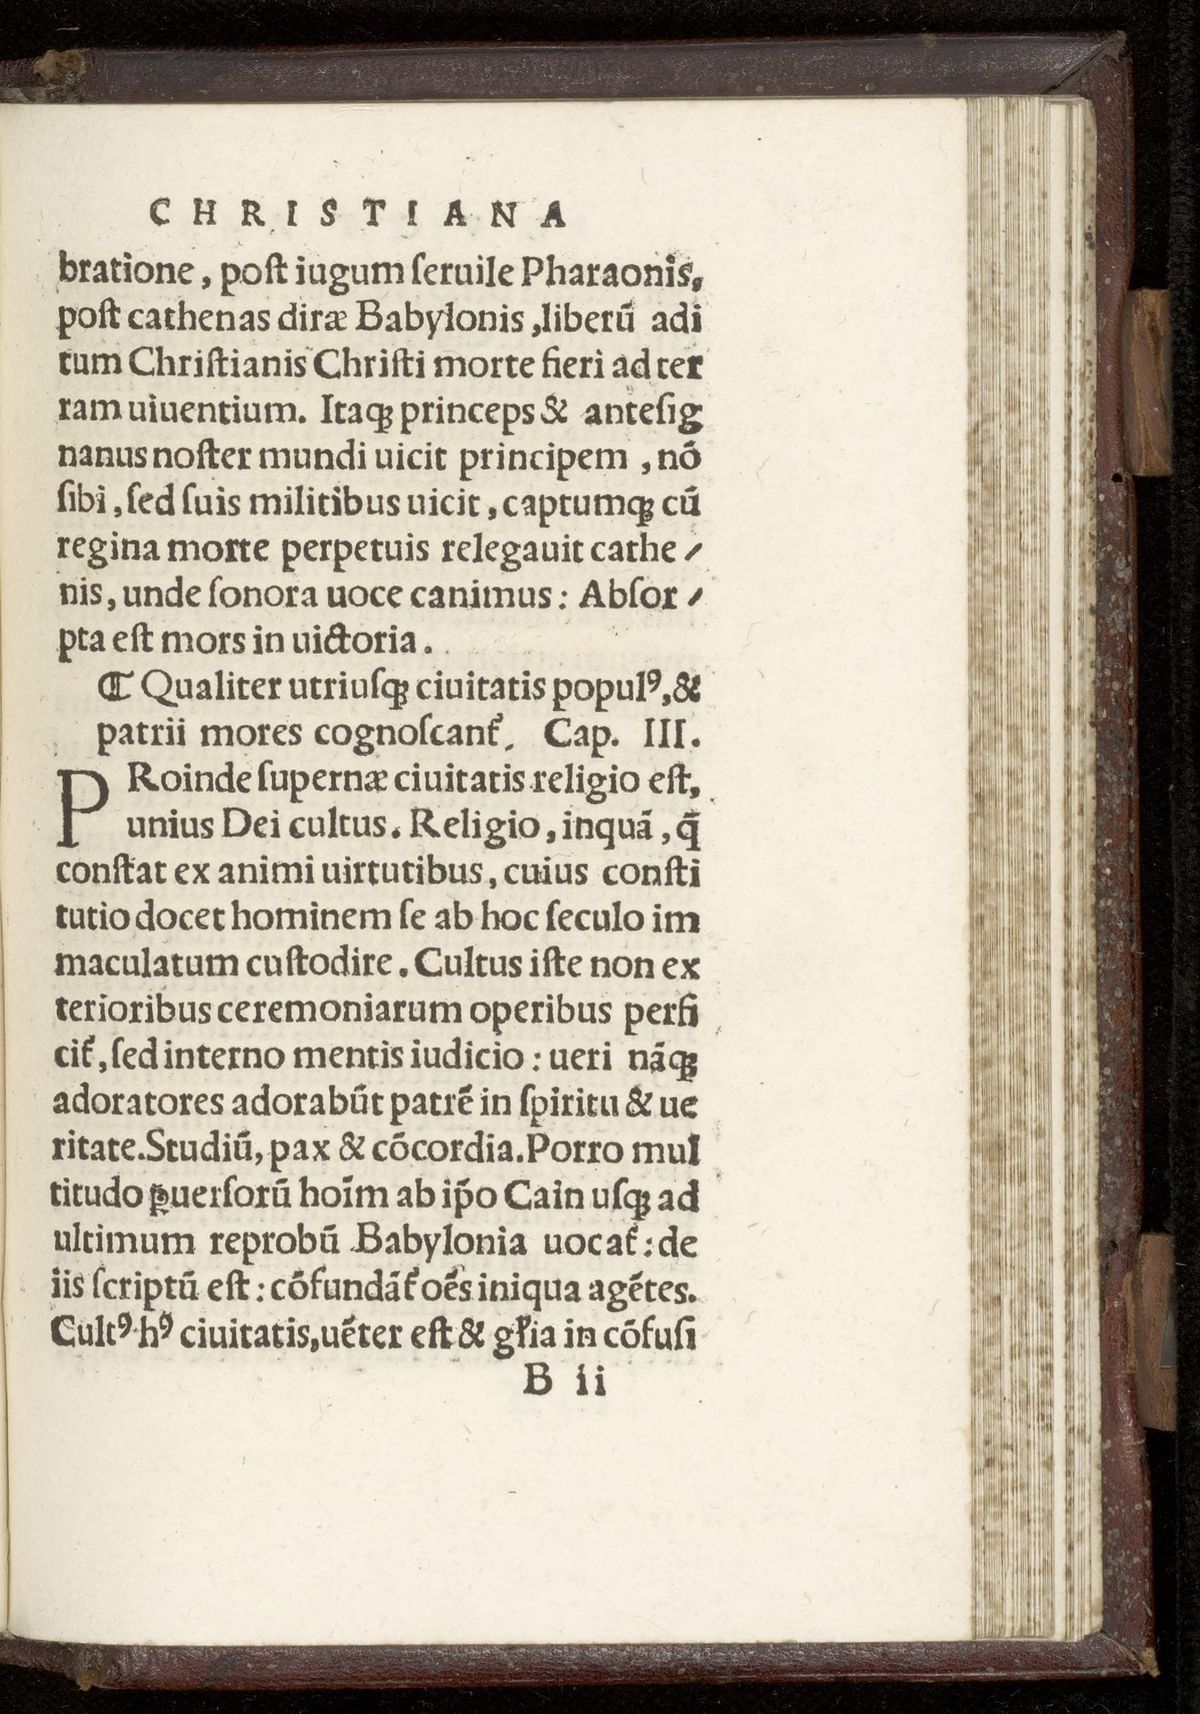 CHRISTIANA
bratione, poſt iugum ſeruile Pharaonis,
poſt cathenas diræ Babylonis, liberū adi
tum Chriſtianis Chriſti morte fieri ad ter
ram uiuentium. Itaqꝫ princeps & anteſig
nanus noſter mundi uicit principem, nō
ſibi, ſed ſuis militibus uicit, captumqꝫ cū
regina morte perpetuis relegauit cathe⸗
nis, unde ſonora uoce canimus: Abſor⸗
pta eſt mors in uictoria.
¶ Qualiter utriuſqꝫ ciuitatis populꝰ, &
patrii mores cognoſcant᷑. Cap. III.
PRoinde ſupernæ ciuitatis religio eſt,
unius Dei cultus. Religio, inquā, q̄
conſtat ex animi uirtutibus, cuius conſti
tutio docet hominem ſe ab hoc ſeculo im
maculatum cuſtodire. Cultus iſte non ex
terioribus ceremoniarum operibus perfi
cit᷑, ſed interno mentis iudicio: ueri nāqꝫ
adoratores adorabūt patrē in ſpiritu & ue
ritate. Studiū, pax & cōcordia. Porro mul
titudo ꝑuerſorū hoīm ab ip̄o Cain uſqꝫ ad
ultimum reprobū Babylonia uocat᷑: de
iis ſcriptū eſt: cōfundāt᷑ oēs iniqua agētes.
Cultꝰ hꝰ ciuitatis, uēter eſt & gl̓ia in cōfuſi
B ii